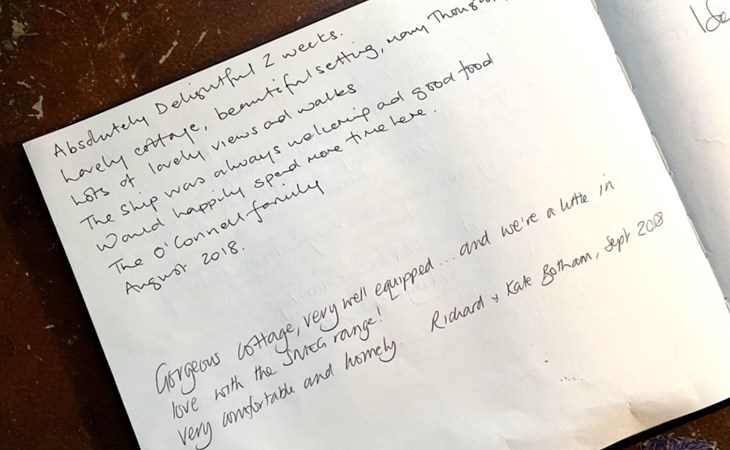 Absolutely Delightful 2 weeks.
Lovely cottage, beautiful setting, many
Lots of lovely views and walks
The Ship was always welcoming ad good food
Would happily spend more time here.
The O'Connell family
August 2018.
Gorgeous cottage, very well equipped... and we're a little in
love with the SMEG range!
very comfortable and homely Richard + Kate Botham, Sept 2018